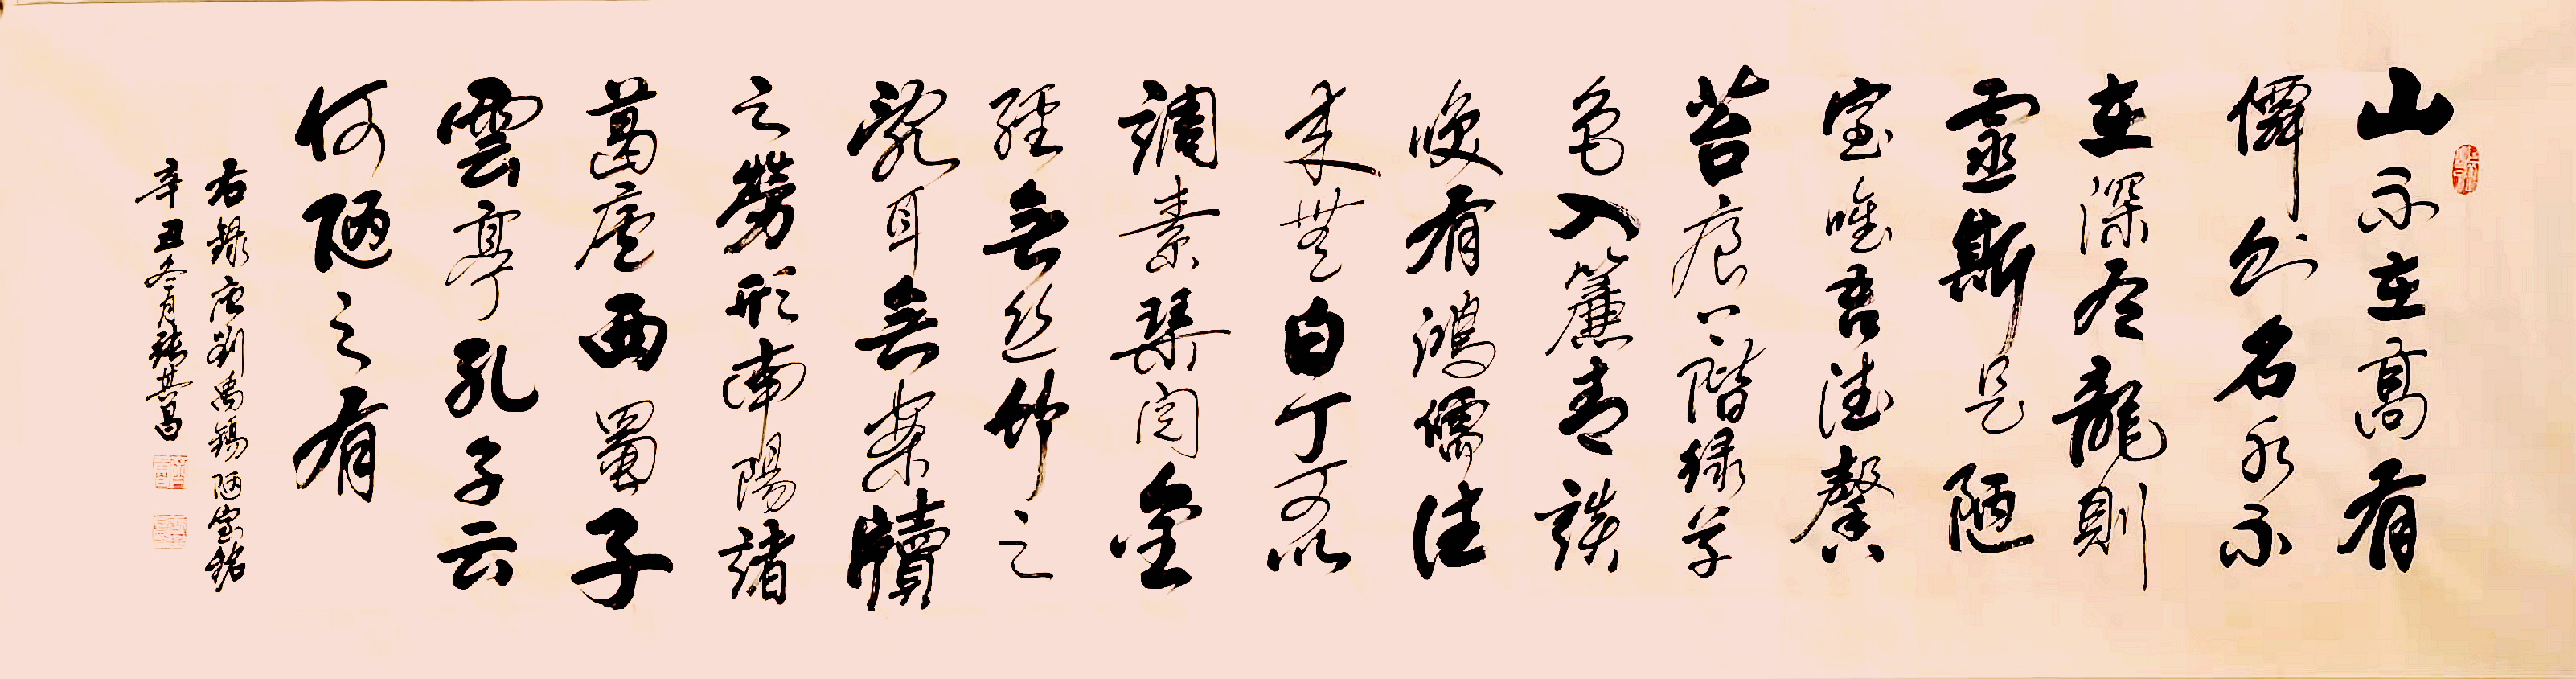 山不在高有
僊則名水不
在深有龍則
靈斯是陋
室唯吾德馨
苔痕上階緑草
色入簾青談
咲有鴻儒往
来無白丁可以
調素琴閲金
經無丝竹之
亂耳無案牘
之勞形南陽諸
葛廬西蜀子
雲亭孔子云
何陋之有
右録唐劉禹錫陋室銘
辛丑冬月張其昌